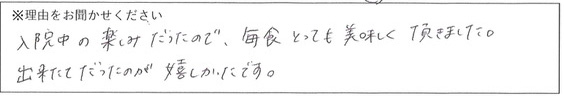 ※理由をお聞かせください
入院中の楽しみだったので、毎食とっても美味しく頂きました。
出来たてだったのが嬉しかったです。